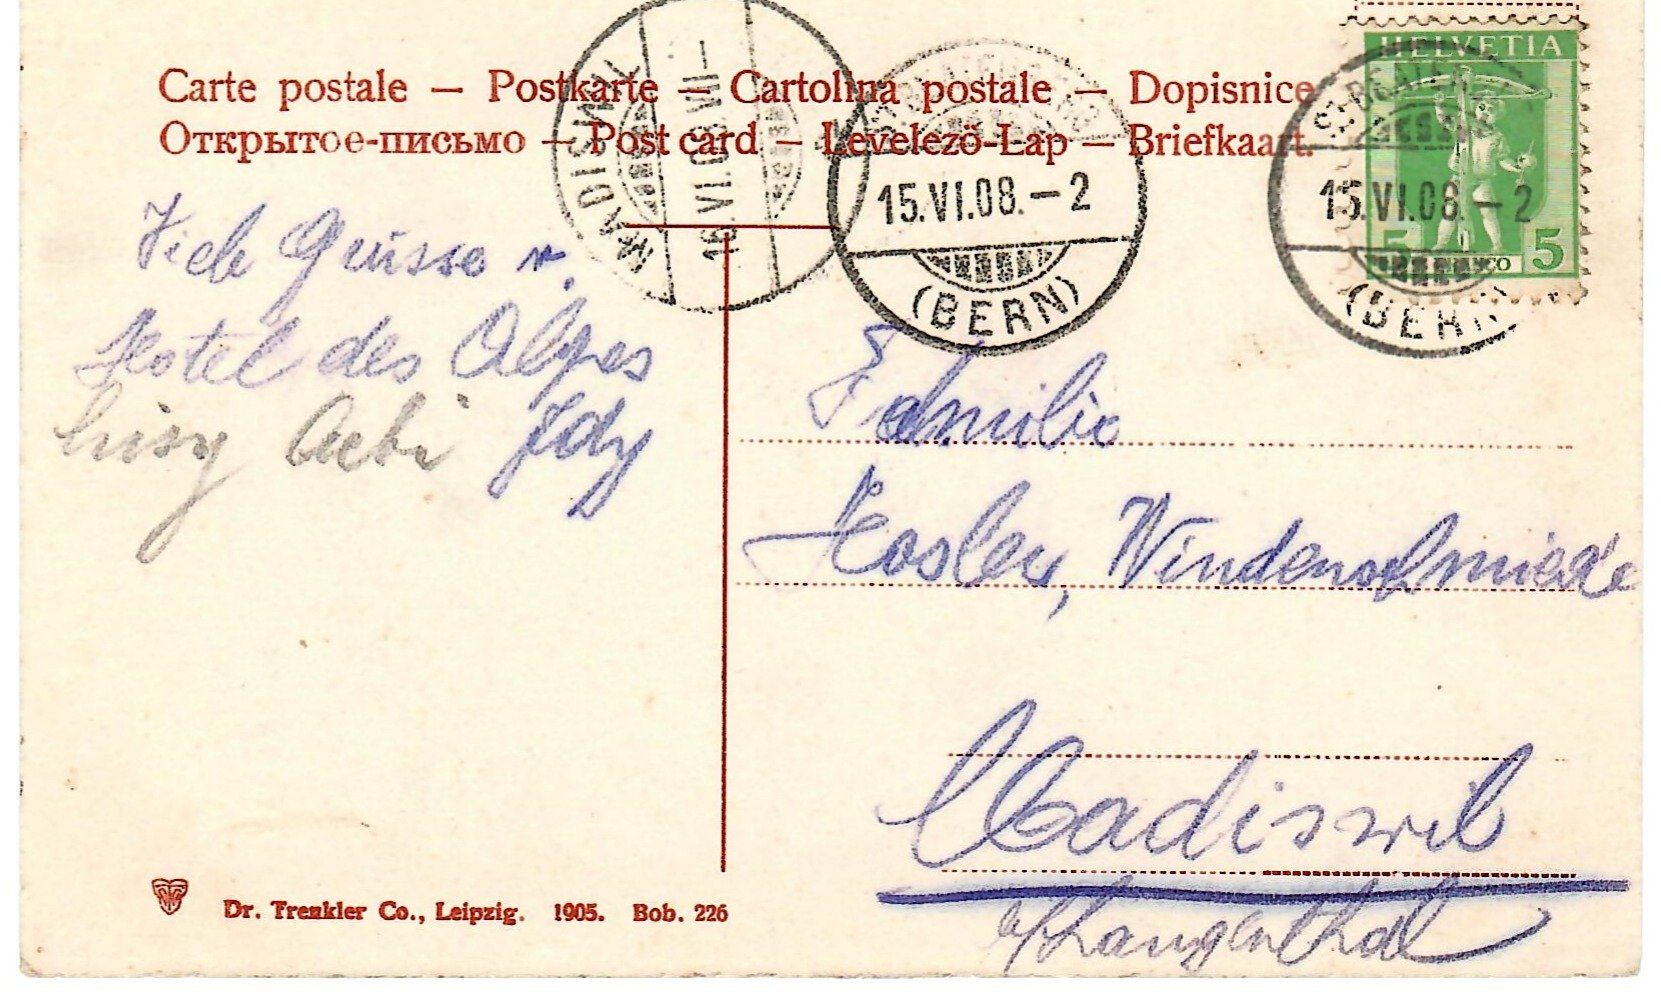 Carte postale — Postkarte — Cartolina postale — Dopisnice
Открытое-письмо — Post card — Levelező-Lap — Briefkaart.
HELVETIA
5 5
MADISWIL
16.VI.08.VII—
15.VI.08.—2
(BERN)
15.VI.08.—2
(BERN)
Viele Grüsse v.
Hotel des Alpes
Aebi Idy
Familie
Hosler, Windenschmiede
Madiswil
b/Langenthal
Dr. Trenkler Co., Leipzig. 1905. Bob. 226